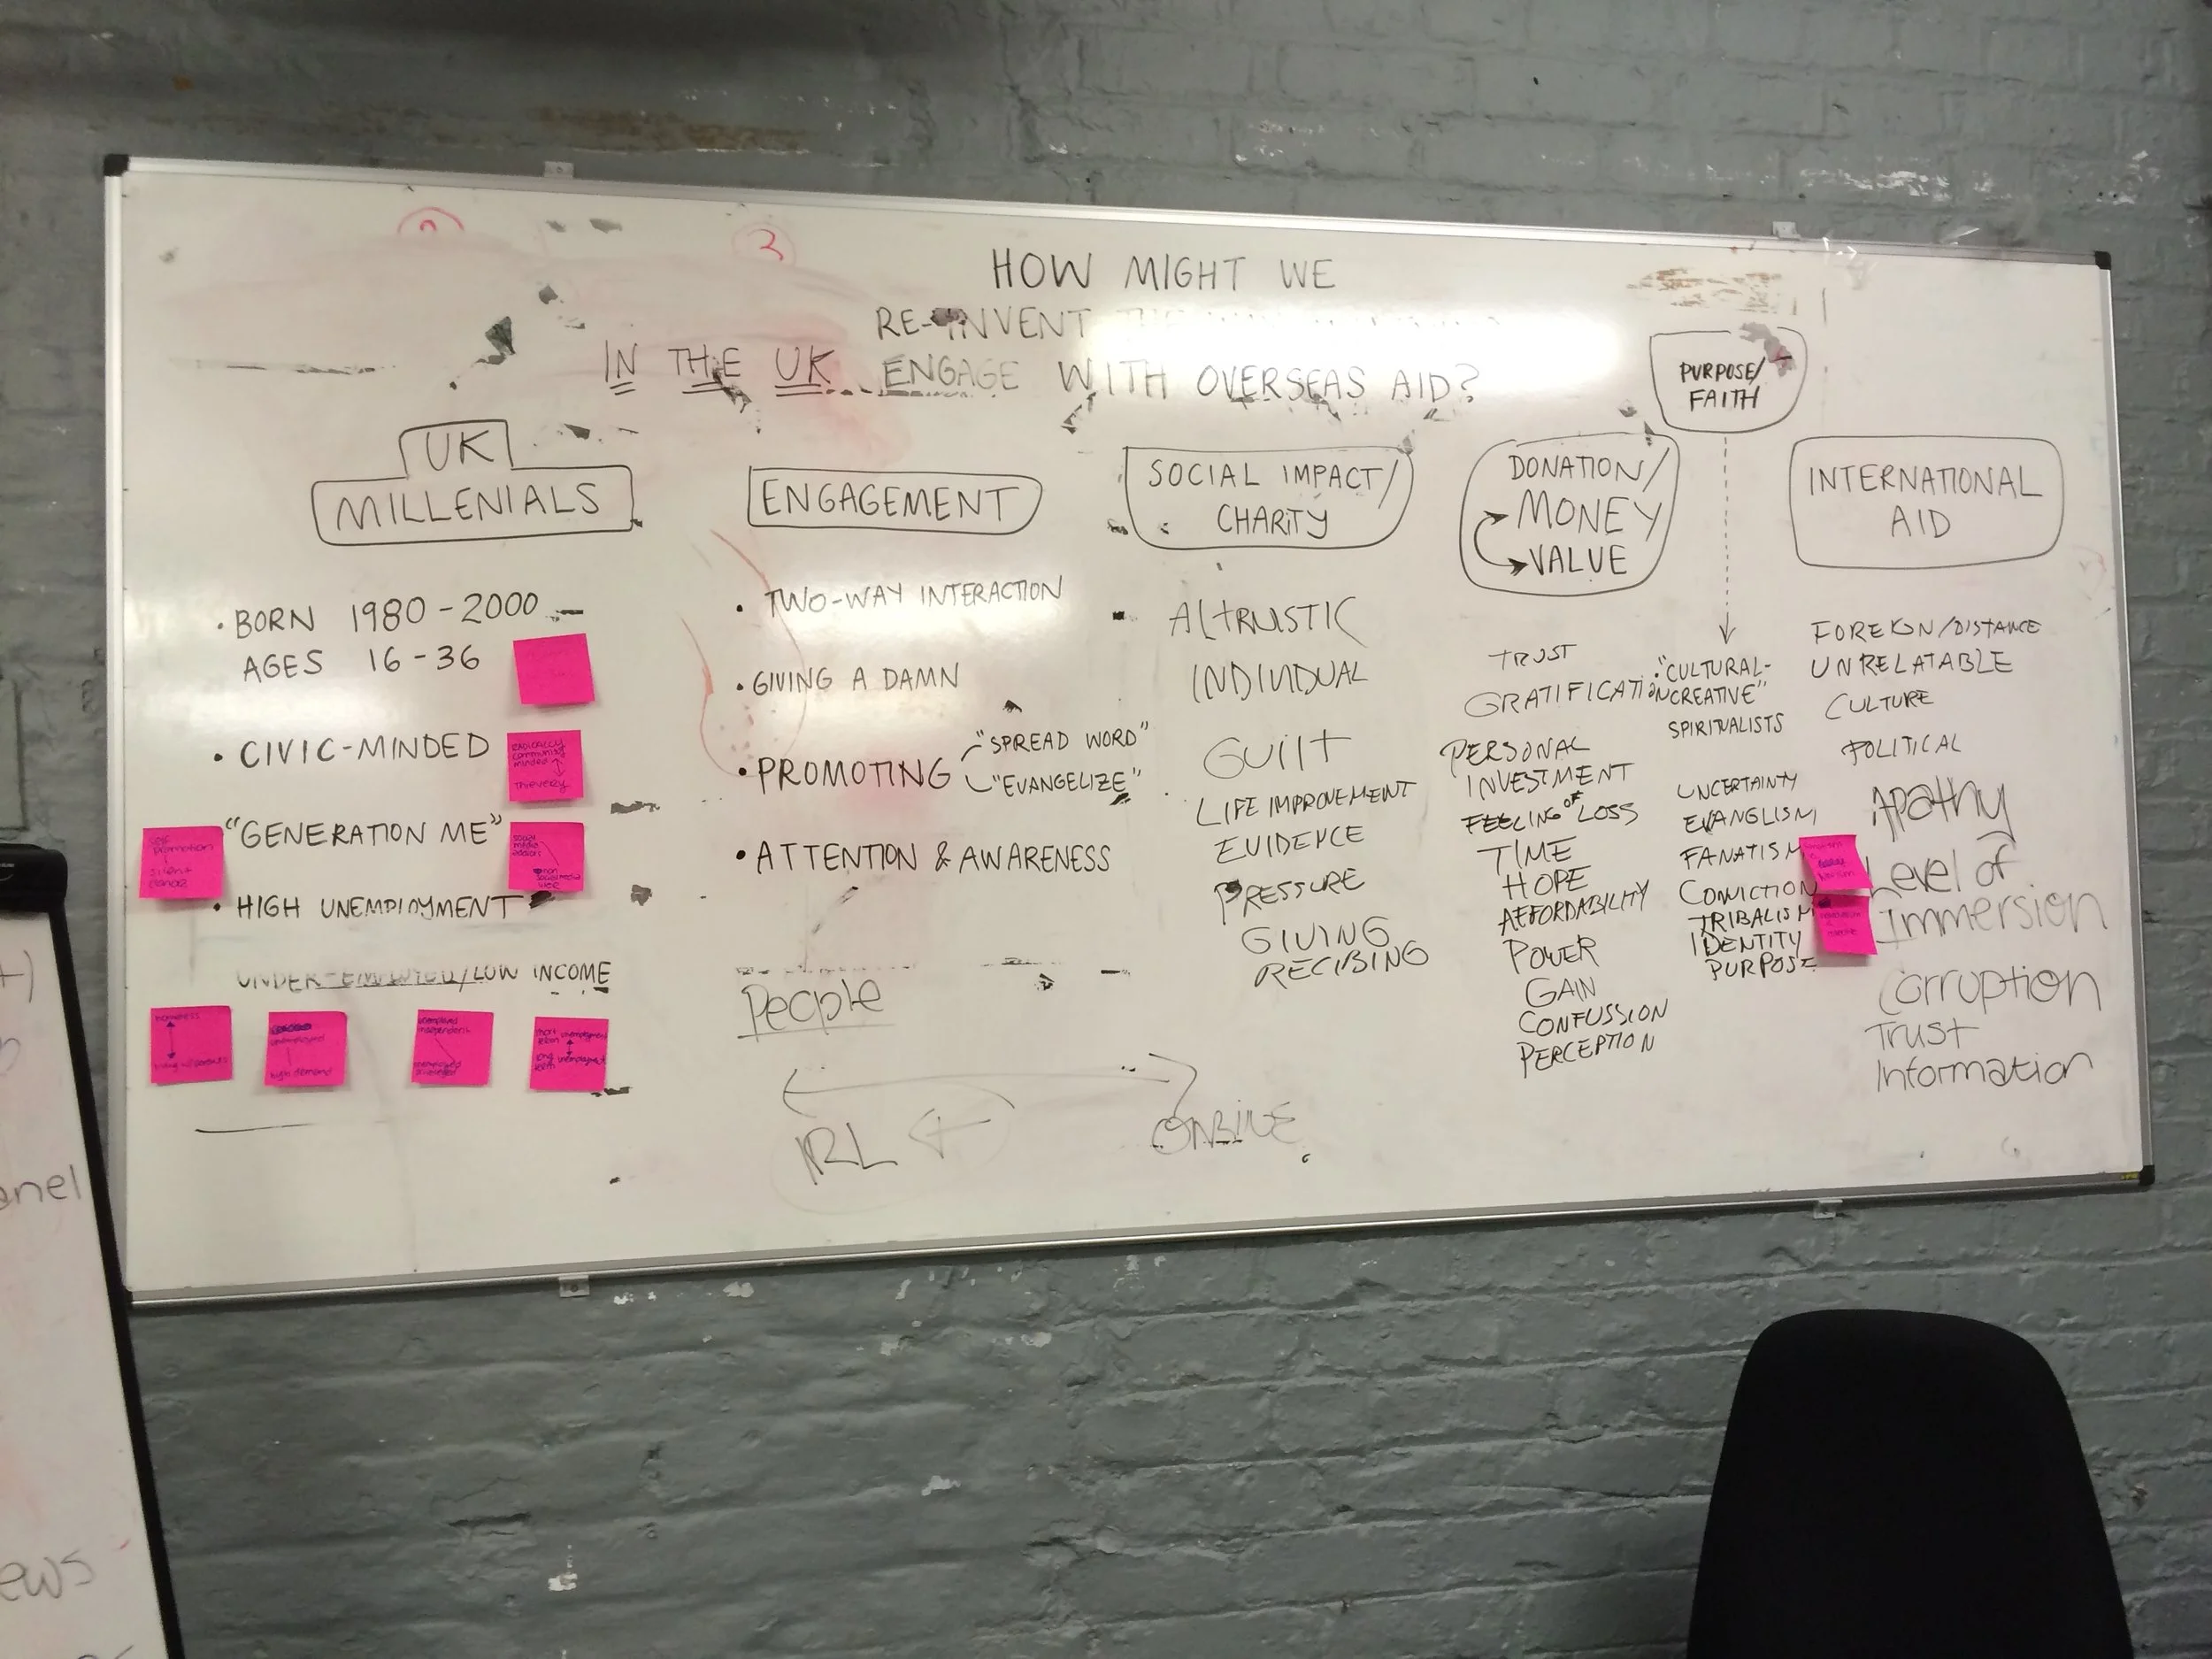 HOW MIGHT WE
RE-INVENT THE
IN THE UK ENGAGE WITH OVERSEAS AID?
UK
MILLENIALS
• BORN 1980-2000
AGES 16-36
• CIVIC-MINDED
RADICALLY
community
minded
THIEVERY
"GENERATION ME"
promotion
social
media
non
• HIGH UNEMPLOYMENT
UNDER-EMPLOYED/LOW INCOME
unemployed
high demand
unemployed
short unemployment
long unemployment
ENGAGEMENT
• TWO-WAY INTERACTION
• GIVING A DAMN
• PROMOTING
"SPREAD WORD"
"EVANGELIZE"
• ATTENTION & AWARENESS
People
IRL
ONLINE
SOCIAL IMPACT/
CHARITY
ALTRUISTIC
INDIVIDUAL
GUILT
LIFE IMPROVEMENT
EVIDENCE
PRESSURE
GIVING
RECIBING
DONATION/
MONEY
VALUE
TRUST
GRATIFICATION
PERSONAL
INVESTMENT
FEELING OF LOSS
TIME
HOPE
AFFORDABILITY
POWER
GAIN
CONFUSSION
PERCEPTION
PURPOSE/
FAITH
• "CULTURAL-
CREATIVE"
SPIRITUALISTS
UNCERTAINTY
EVANGLISM
FANATISM
CONVICTION
TRIBALISM
IDENTITY
PURPOSE
INTERNATIONAL
AID
FOREIGN/DISTANCE
UNRELATABLE
CULTURE
POLITICAL
Apathy
Level of
Immersion
Corruption
Trust
Information
anel
ews